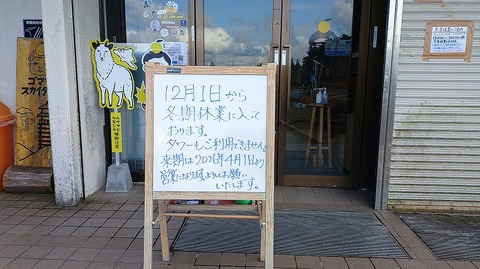 12月1日から
冬期休業に入って
おります。
タワーもご利用できません。
来期は2026年4月1日より
営業になりますよろしくお願い
いたします。
ゴマ
スカイタ